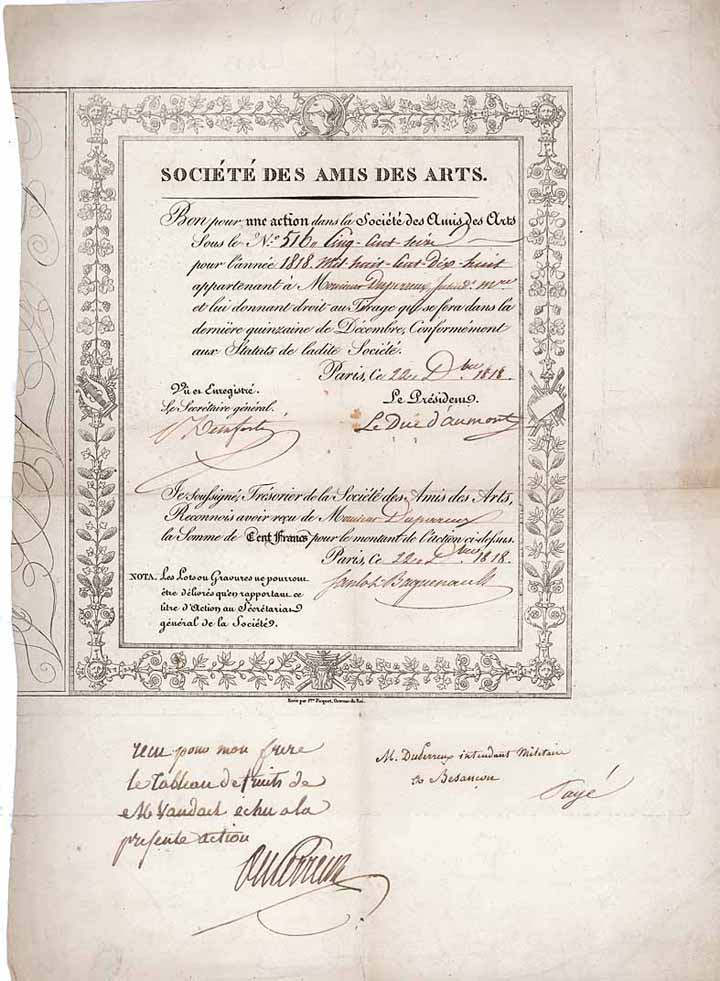 SOCIÉTÉ DES AMIS DES ARTS.
Bon pour une action dans la Société des Amis des Arts
Sous le N.º 516. Cinq-Cent-Seize
pour l'année 1818. Mil-huit-Cent-Dix-huit
appartenant à Monsieur Duperreux
et lui donnant droit au Tirage qui se fera dans la
dernière quinzaine de Décembre, Conformément
aux Statuts de ladite Société.
Paris, Ce 22. Xbre 1818.
Vû et Enregistré.
Le Secrétaire général.
Le Président.
Le Duc d'aumont
Je soussigné, Trésorier de la Société des Amis des Arts,
Reconnois avoir reçu de Monsieur Duperreux
la Somme de Cent Francs pour le montant de l'action ci-dessus.
Paris, Ce 22. Xbre 1818.
NOTA. Les Lots ou Gravures ne pourront
être délivrés qu'en rapportant ce
titre d'Action au Sécrétariat
général de la Société.
Baguenault
Ecrit par Picquet, Graveur du Roi.
recu pour mon frere
le tableau de fruits de
Mr Vandael echu a la
presente action
Duperreux
M. Duperreux intendant Militaire
a Besançon
Payé